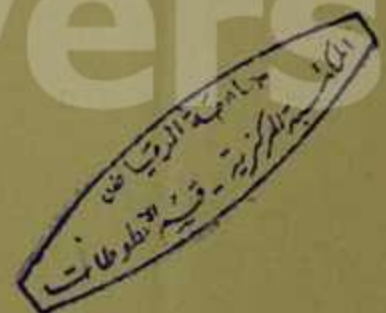 vers
جامعة الرياض
المكتبة المركزية - قسم المخطوطات